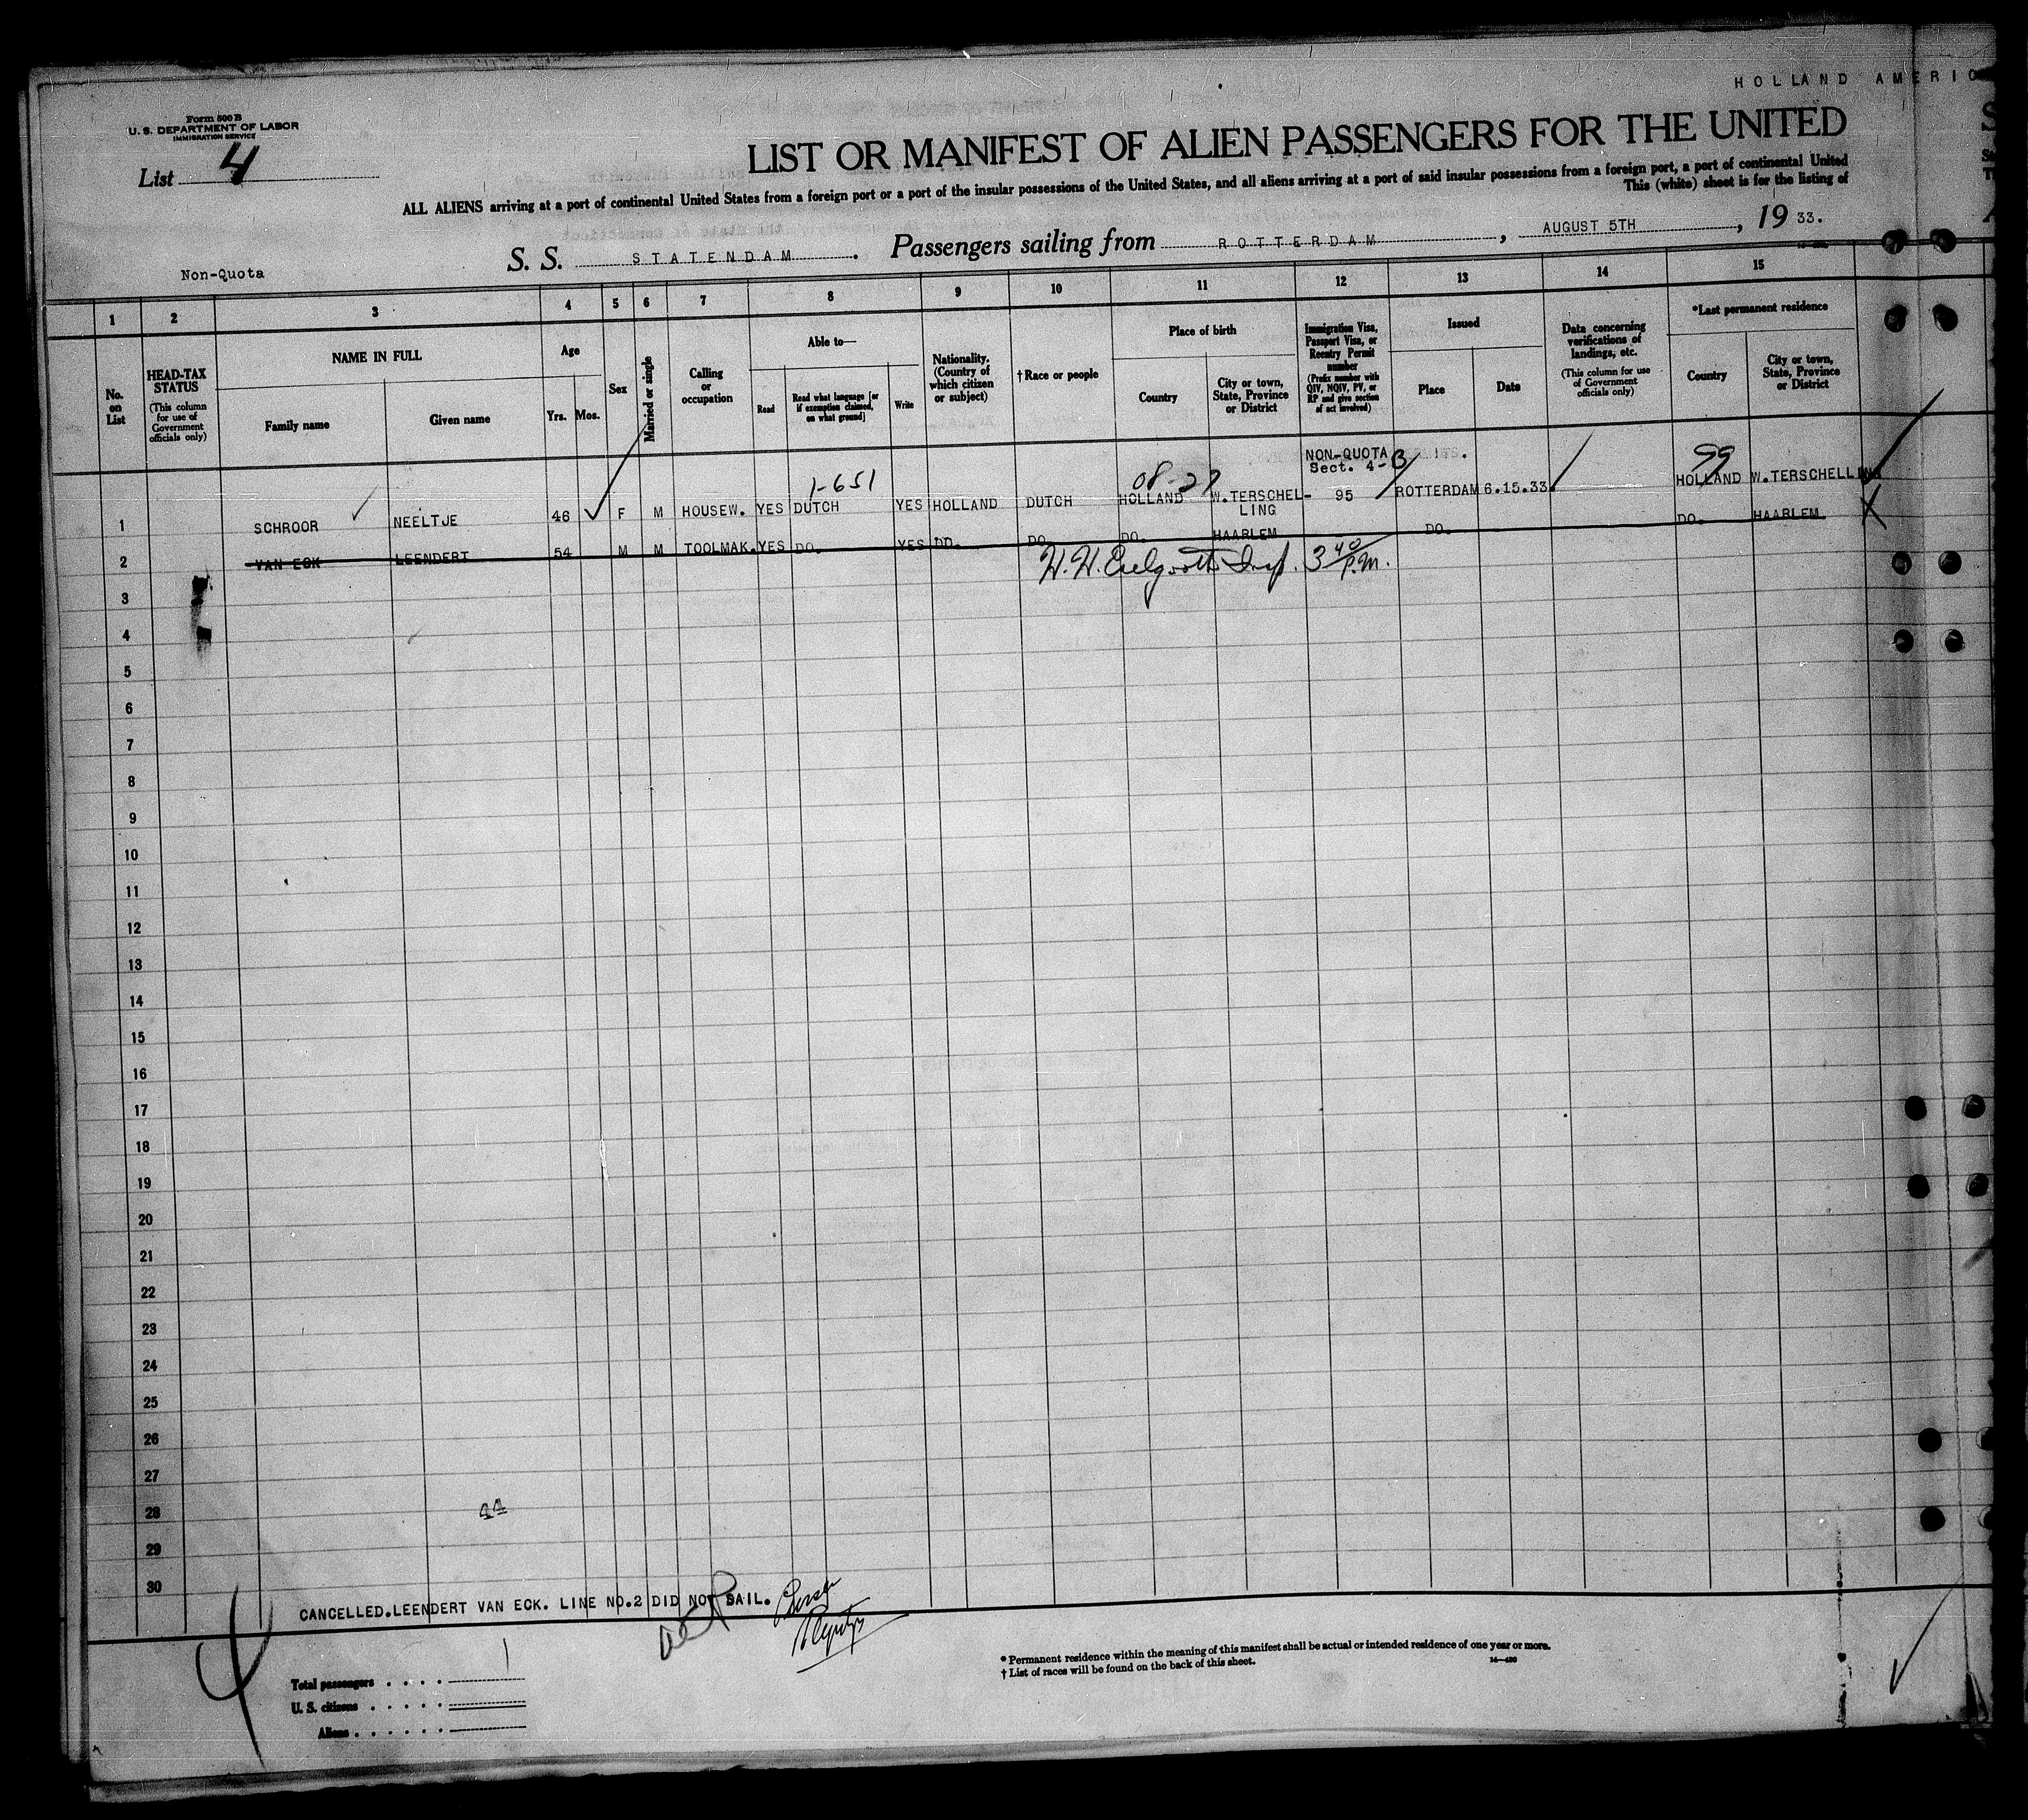 HOLLAND AMERIC
Form 500 B
U. S. DEPARTMENT OF LABOR
IMMIGRATION SERVICE
List 4
LIST OR MANIFEST OF ALIEN PASSENGERS FOR THE UNITED
ALL ALIENS arriving at a port of continental United States from a foreign port or a port of the insular possessions of the United States, and all aliens arriving at a port of said insular possessions from a foreign port, a port of continental United
This (white) sheet is for the listing of
Non-Quota
S. S. STATENDAM. Passengers sailing from ROTTERDAM, AUGUST 5TH, 19 33.
1 2 3 4 5 6 7 8 9 10 11 12 13 14 15
No. on List
HEAD-TAX STATUS (This column for use of Government officials only)
NAME IN FULL
Family name Given name
Age
Yrs. Mos.
Sex
Married or single
Calling or occupation
Able to—
Read Read what language [or if exemption claimed, on what ground] Write
Nationality. (Country of which citizen or subject)
† Race or people
Place of birth
Country City or town, State, Province or District
Immigration Visa, Passport Visa, or Reentry Permit number (Prefix number with QIV, NQIV, PV, or RP and give section of act involved)
Issued
Place Date
Data concerning verifications of landings, etc. (This column for use of Government officials only)
*Last permanent residence
Country City or town, State, Province or District
NON-QUOTA
Sect. 4-B
1-651 08-27 99
1 SCHROOR NEELTJE 46 F M HOUSEW. YES DUTCH YES HOLLAND DUTCH HOLLAND W.TERSCHEL-LING 95 ROTTERDAM 6.15.33. HOLLAND W.TERSCHELLING
2 VAN ECK LEENDERT 54 M M TOOLMAK. YES DO. YES DO. DO. DO. HAARLEM DO. DO. HAARLEM
3 40 P.M.
3
4
5
6
7
8
9
10
11
12
13
14
15
16
17
18
19
20
21
22
23
24
25
26
27
28
44
29
30
CANCELLED.LEENDERT VAN ECK. LINE NO.2 DID NOT SAIL.
4
Total passengers . . . . 1
U. S. citizens . . . . .
Aliens . . . . . .
* Permanent residence within the meaning of this manifest shall be actual or intended residence of one year or more.
† List of races will be found on the back of this sheet.
14—430